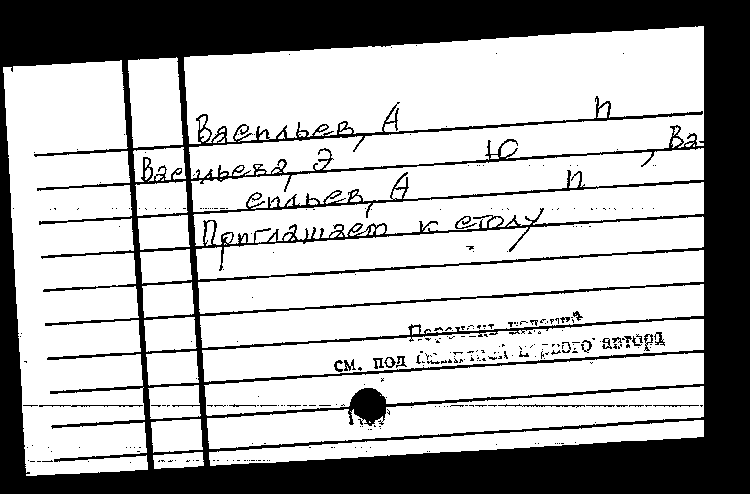 Васильев, А П
Васильева, Э Ю , Ва-
сильев, А П
Приглашаем к столу
Перечень изданий
см. под фамилией первого автора